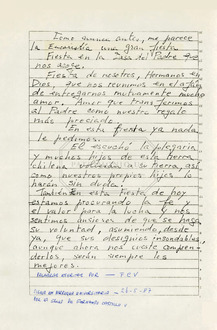 Como nunca antes, me parece
la Eucaristía una gran fiesta.
Fiesta en la Casa del Padre que
nos acoge.
Fiesta de nosotros, Hermanos en
Dios, que nos reunimos en el afán
de entregarnos mutuamente mucho
amor. Amor que transferimos
al Padre como nuestro regalo
más preciado.
En esta fiesta ya nada
le pedimos:
EL escuchó la plegaria
y muchos hijos de esta tierra
chilena a su tierra, así
como nuestros propios hijos lo
harán sin duda.
También en esta Fiesta de hoy
estamos procurando la fe y
el valor para la lucha y nos
sentimos ansiosos de que se haga
su voluntad, asumiendo, desde
ya, que sus designios insondables,
aunque ahora nos cueste compren-
derlos, serán siempre los
mejores.
POR
EN PARROQUIA UNIVERSITARIA
POR EL